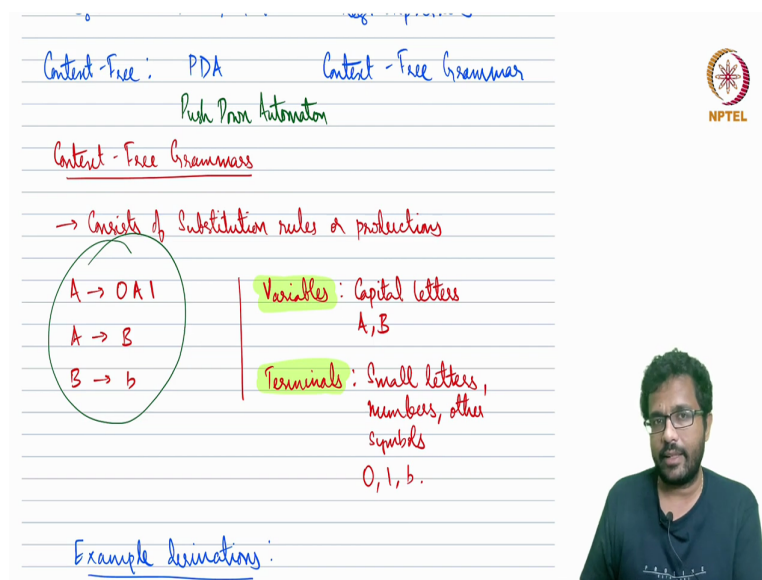 Context-Free: PDA Context-Free Grammar
Push Down Automaton
NPTEL
Context-Free Grammars
→ Consists of Substitution rules or productions
A → 0A1
A → B
B → b
Variables: Capital letters
A, B
Terminals: Small letters,
numbers, other
symbols
0, 1, b.
Example derivations: